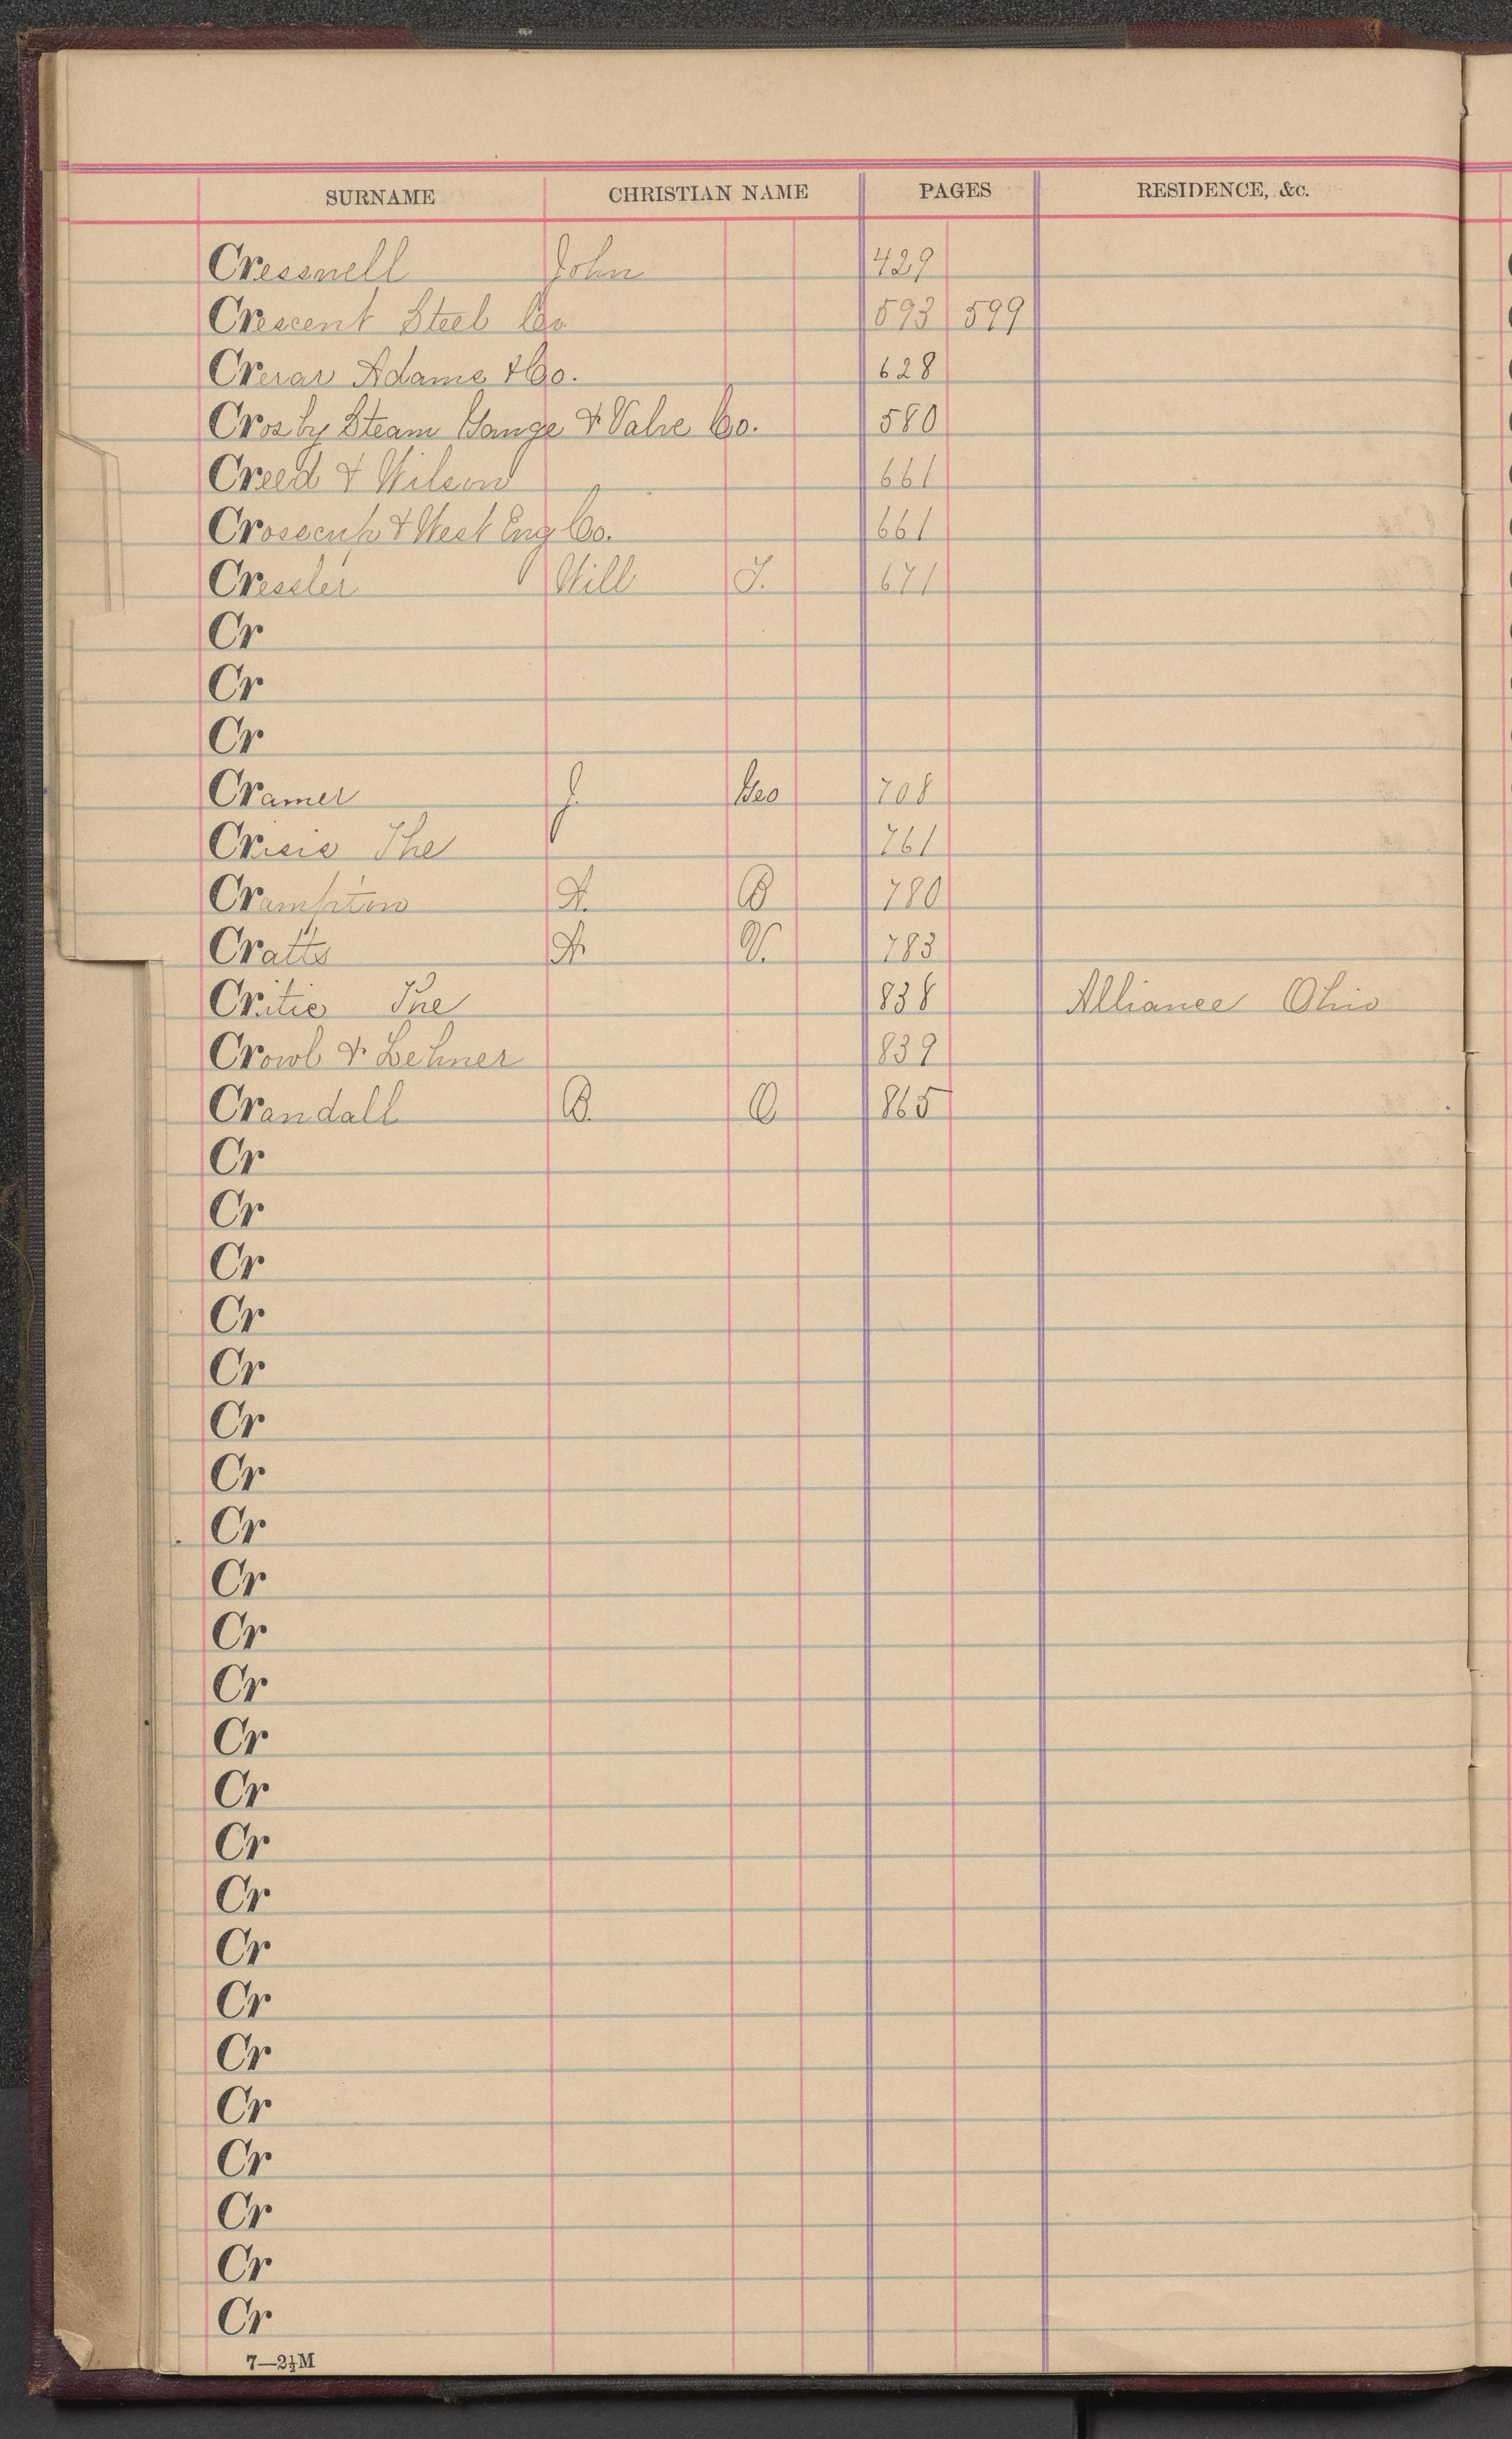 SURNAME CHRISTIAN NAME PAGES RESIDENCE, &c.
Cresswell John 429
Crescent Steel Co. 593 599
Crerar Adams & Co. 628
Crosby Steam Gange & Valve Co. 580
Creed & Wilson 661
Crosscup & West Eng Co. 661
Cressler Will I. 671
Cr
Cr
Cr
Cramer J. Geo 708
Crisis The 761
Crampton A. B 780
Cratts A. V. 783
Critic The 838 Alliance Ohio
Crowl & Lehner 839
Crandall B. O 865
Cr
Cr
Cr
Cr
Cr
Cr
Cr
Cr
Cr
Cr
Cr
Cr
Cr
Cr
Cr
Cr
Cr
Cr
Cr
Cr
Cr
Cr
Cr
7—2½M